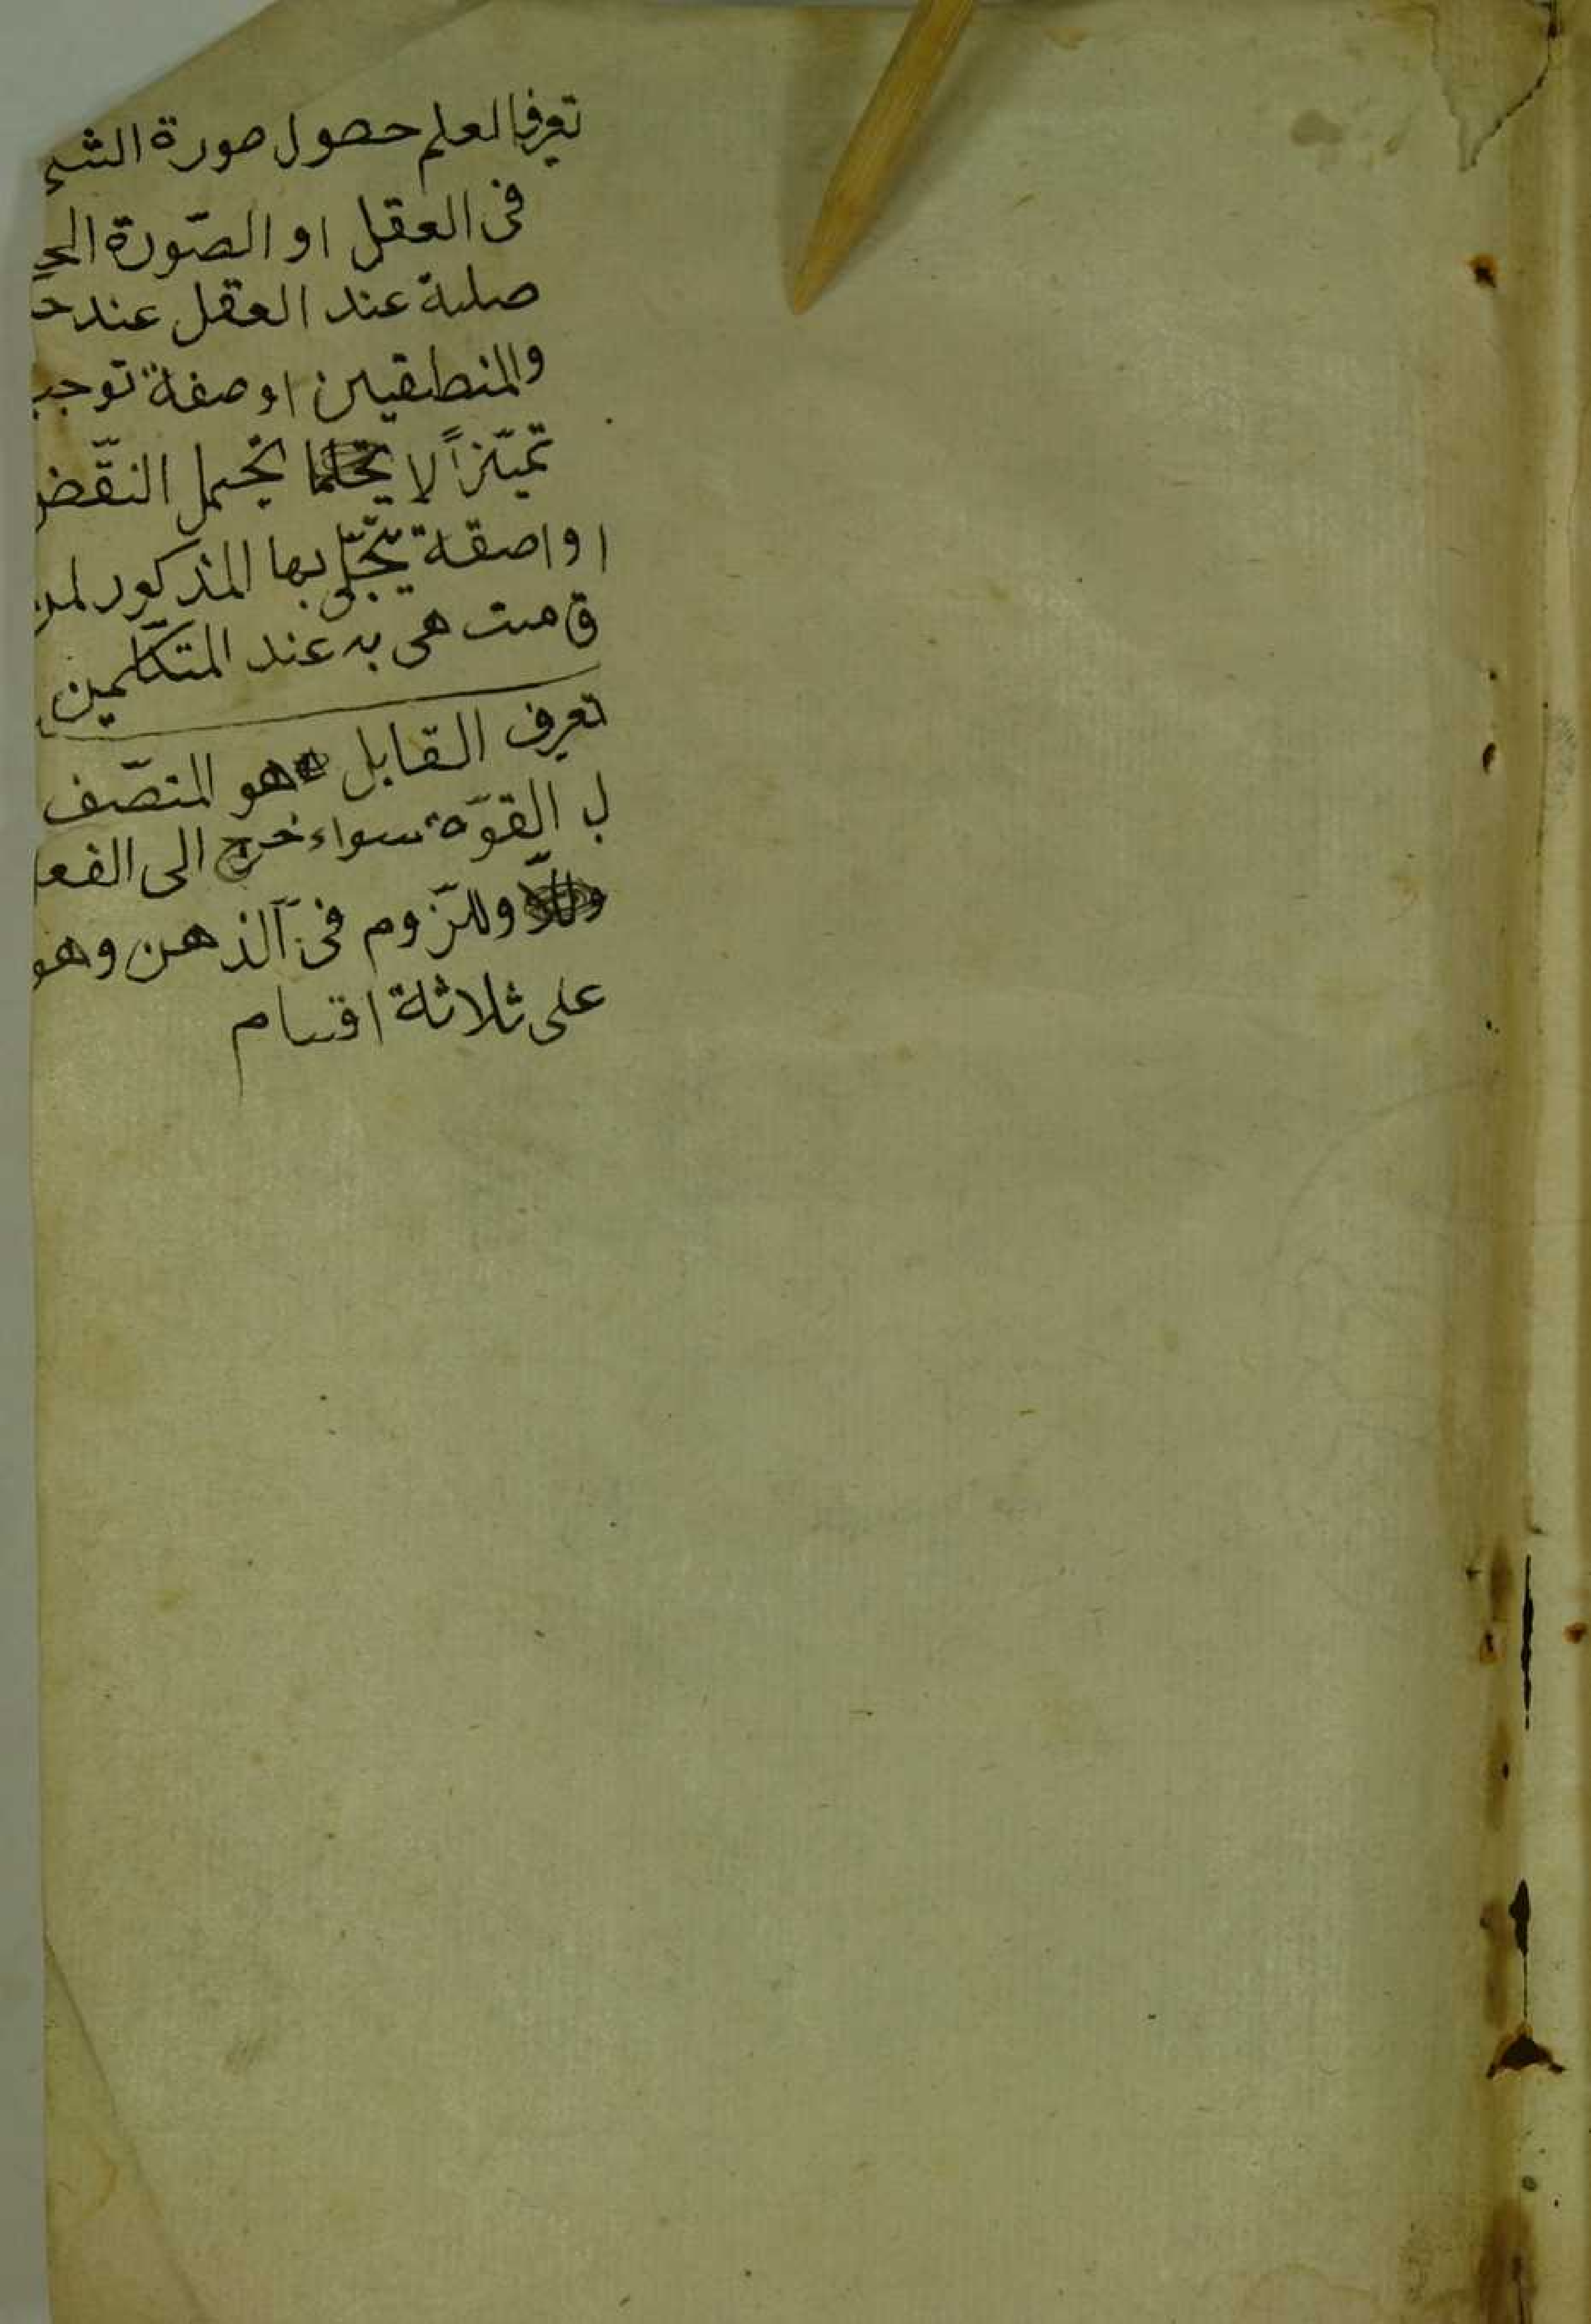 تعرف العلم حصول صورة الشئ
فى العقل او الصّورة الحا
صلة عند العقل عند حـ
والمنطقيين او صفة توجب
تميّزاً لا يحتمل النقّض
او اصفة يتجّلى بها المذكور لمن
قامت هى به عند المتكلّمين
تعرف القابل هو المتصّف
ب القوّة سواء خرج الى الفعل
وللّزوم فى الذهن وهو
على ثلاثة اقسام